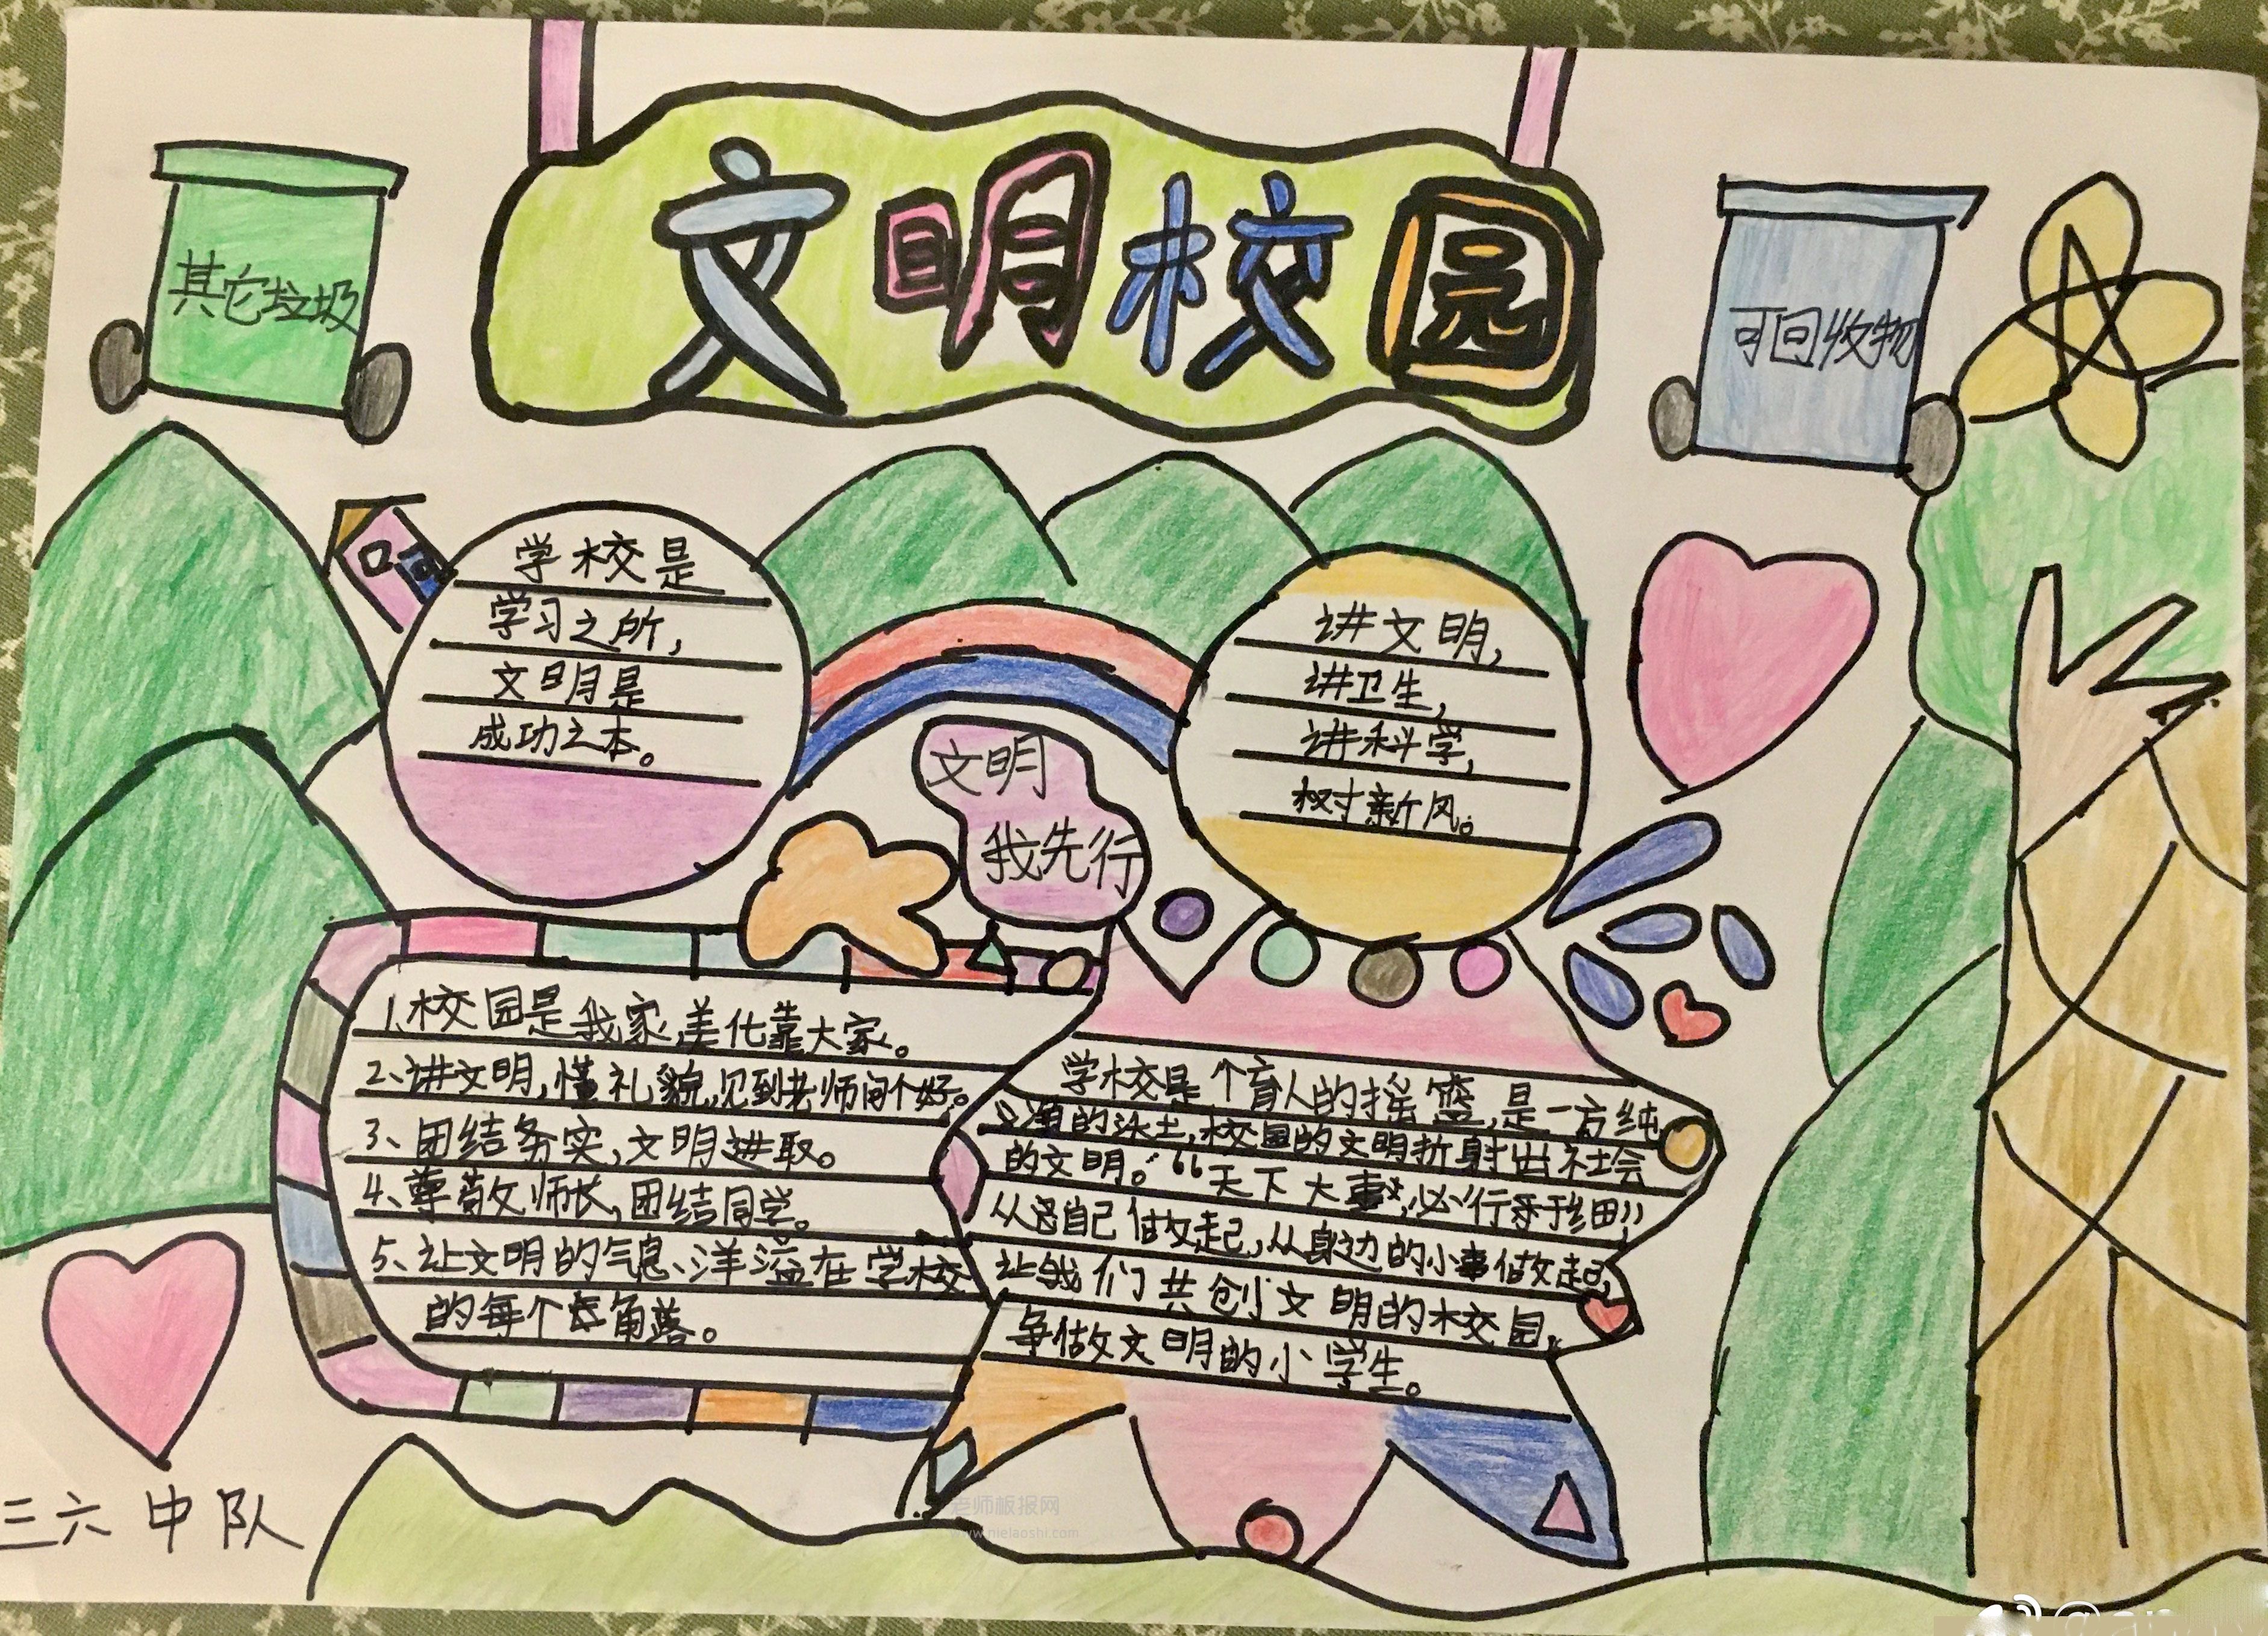 文明校园
其它垃圾
可回收物
学校是
学习之所,
文明是
成功之本。
讲文明,
讲卫生,
讲科学,
树新风。
文明
我先行
1、校园是我家,美化靠大家。
2、讲文明,懂礼貌,见到老师问个好。
3、团结务实,文明进取。
4、尊敬师长,团结同学。
5、让文明的气息、洋溢在学校
的每个角落。
学校是个育人的摇篮,是一方纯
的沃土,校园的文明折射出社会
的文明。“天下大事,必行于细”
从自己做起,从身边的小事做起,
让我们共创文明的校园,
争做文明的小学生。
三六中队
老师板报网